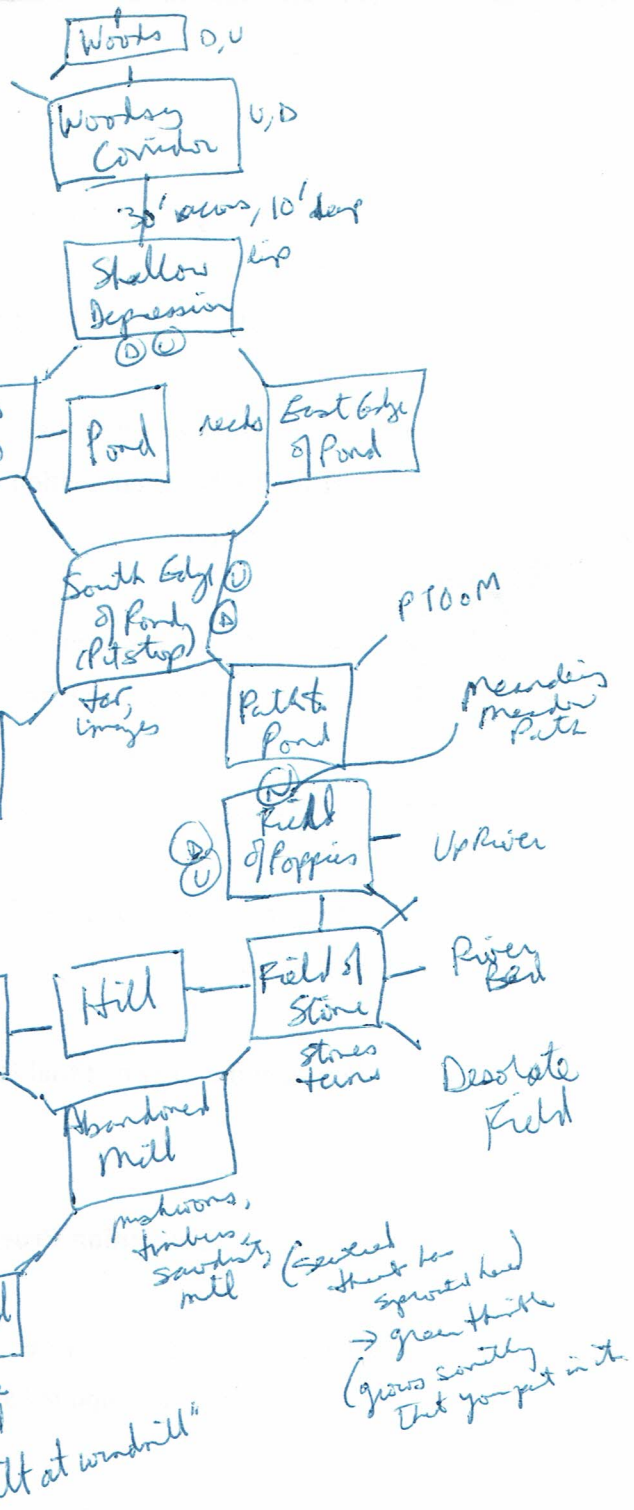 Woods
D, U
Woodsy
Corridor
U, D
30' across, 10' deep
lip
Shallow
Depression
D U
Pond
reeds
East Edge
of Pond
South Edge
of Pond
(Pitstop)
U
D
tar,
images
PTOOM
Path to
Pond
Meandering
Meadow
Path
N
Field
of Poppies
D
U
UpRiver
Hill
Field of
Stone
stones
River
Bed
Desolate
Field
Abandoned
Mill
mushrooms,
timbers,
sawdust,
mill
that has
sprouted
→ green thimble
(grows
that you put in it
at windmill"